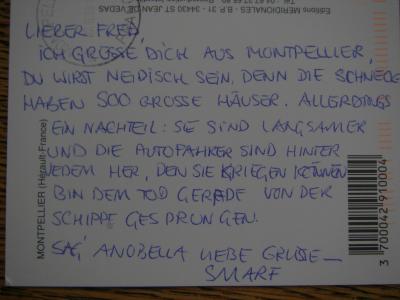 Editions MERIDIONALES - B.P 31 - 34431 ST JEAN DE VEDAS
LIEBER FRED,
ICH GRÜSSE DICH AUS MONTPELLIER,
DU WIRST NEIDISCH SEIN, DENN DIE SCHNECKE
HABEN SOO GROSSE HÄUSER. ALLERDINGS
EIN NACHTEIL: SIE SIND LANGSAMER
UND DIE AUTOFAHRER SIND HINTER
JEDEM HER, DEN SIE KRIEGEN KÖNNEN
BIN DEM TOD GERADE VON DER
SCHIPPE GESPRUNGEN.
SAG' ANOBELLA LIEBE GRÜSSE –
SMARF
MONTPELLIER (Hérault-France)
3 700042 910004